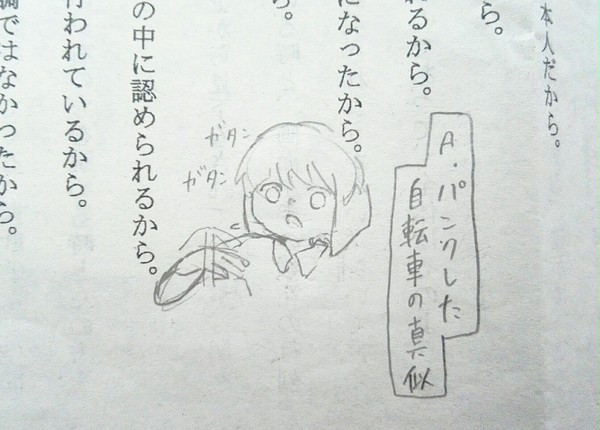 本人だから。
ら。
A.パンクした
自転車の真似
れるから。
になったから。
ら。
ガタン
ガタン
の中に認められるから。
行われているから。
調ではなかったから。